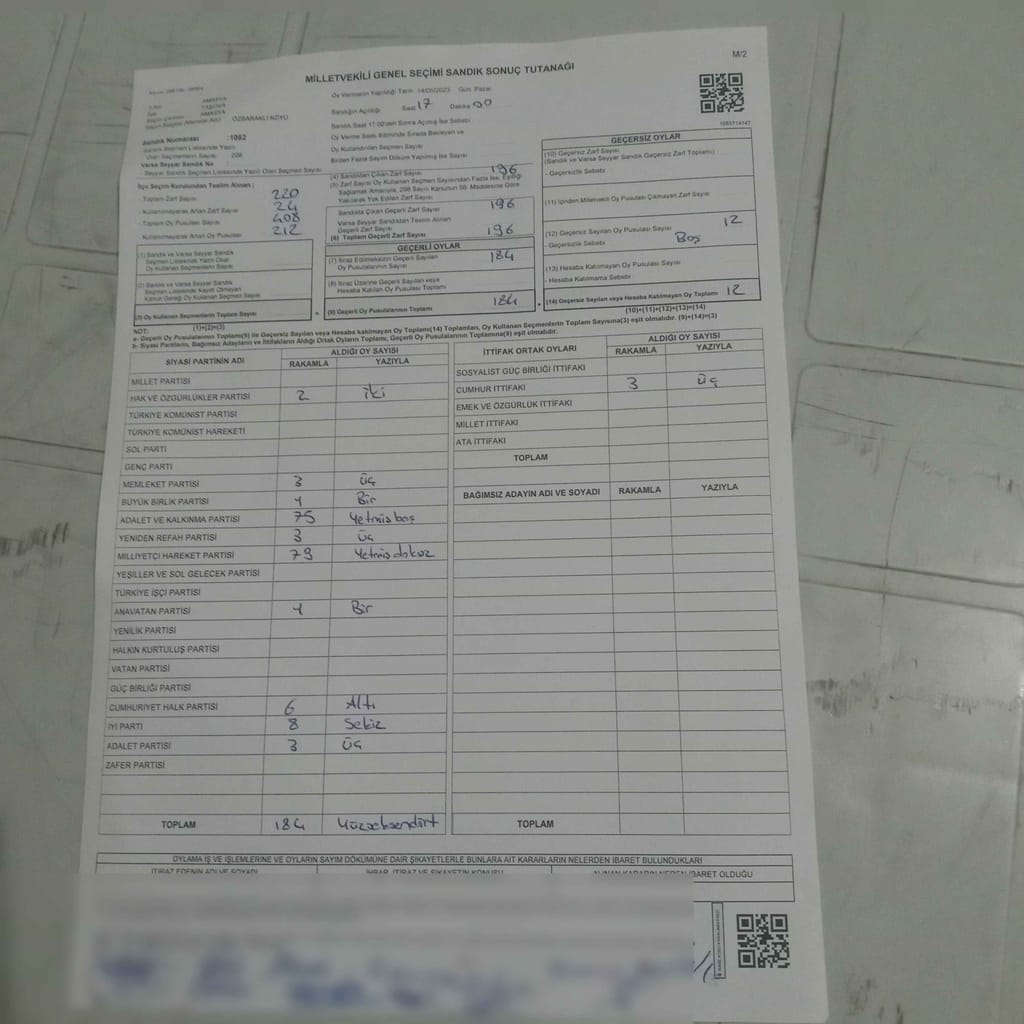 M/2
MİLLETVEKİLİ GENEL SEÇİMİ SANDIK SONUÇ TUTANAĞI
AMASYA
TAŞOVA
AMASYA
ÖZBARAKLI KÖYÜ
Sandık Numarası :1082
Sandık Seçmen Listesinde Yazılı
Olan Seçmenlerin Sayısı 208
Varsa Seyyar Sandık No
Seyyar Sandık Seçmen Listesinde Yazılı Olan Seçmen Sayısı
Oy Vermenin Yapıldığı Tarih 14/05/2023 Gün: Pazar
Sandığın Açıldığı Saat 17 Dakika 00
Sandık Saat 17:00'den Sonra Açılmış İse Sebebi
Oy Verme Saati Bitiminde Sırada Bekleyen ve
Oy Kullandırılan Seçmen Sayısı
Birden Fazla Sayım Döküm Yapılmış İse Sayısı
İlçe Seçim Kurulundan Teslim Alınan ;
- Toplam Zarf Sayısı 220
- Kullanılmayarak Artan Zarf Sayısı 24
- Toplam Oy Pusulası Sayısı 408
- Kullanılmayarak Artan Oy Pusulası 212
(1) Sandık ve Varsa Seyyar Sandık
Seçmen Listesinde Yazılı Olup
Oy Kullanan Seçmenlerin Sayısı
(2) Sandık ve Varsa Seyyar Sandık
Seçmen Listesinde Kayıtlı Olmayan
Kanun Gereği Oy Kullanan Seçmen Sayısı
(3) Oy Kullanan Seçmenlerin Toplam Sayısı
(1)+(2)=(3)
(4) Sandıktan Çıkan Zarf Sayısı 196
(5) Zarf Sayısı Oy Kullanan Seçmen Sayısından Fazla İse, Eşitliği
Sağlamak Amacıyla, 298 Sayılı Kanunun 98. Maddesine Göre
Yakılarak Yok Edilen Zarf Sayısı
Sandıkta Çıkan Geçerli Zarf Sayısı 196
Varsa Seyyar Sandıktan Teslim Alınan
Geçerli Zarf Sayısı
(6) Toplam Geçerli Zarf Sayısı 196
GEÇERLİ OYLAR
(7) İtiraz Edilmeksizin Geçerli Sayılan
Oy Pusulalarının Sayısı 184
(8) İtiraz Üzerine Geçerli Sayılan veya
Hesaba Katılan Oy Pusulası Toplamı
(9) Geçerli Oy Pusulalarının Toplamı 184
GEÇERSİZ OYLAR
(10) Geçersiz Zarf Sayısı
(Sandık ve Varsa Seyyar Sandık Geçersiz Zarf Toplamı)
- Geçersizlik Sebebi
(11) İçinden Milletvekili Oy Pusulası Çıkmayan Zarf Sayısı
(12) Geçersiz Sayılan Oy Pusulası Sayısı 12
- Geçersizlik Sebebi Boş
(13) Hesaba Katılmayan Oy Pusulası Sayısı
- Hesaba Katılmama Sebebi
(14) Geçersiz Sayılan veya Hesaba Katılmayan Oy Toplamı 12
(10)+(11)+(12)+(13)=(14)
NOT:
a- Geçerli Oy Pusulalarının Toplamı(9) ile Geçersiz Sayılan veya Hesaba katılmayan Oy Toplamı(14) Toplamları, Oy Kullanan Seçmenlerin Toplam Sayısına(3) eşit olmalıdır. (9)+(14)=(3)
b- Siyasi Partilerin, Bağımsız Adayların ve İttifakların Aldığı Ortak Oyların Toplamı, Geçerli Oy Pusulalarının Toplamına(9) eşit olmalıdır.
SİYASİ PARTİNİN ADI ALDIĞI OY SAYISI
RAKAMLA YAZIYLA
MİLLET PARTİSİ
HAK VE ÖZGÜRLÜKLER PARTİSİ 2 iki
TÜRKİYE KOMÜNİST PARTİSİ
TÜRKİYE KOMÜNİST HAREKETİ
SOL PARTİ
GENÇ PARTİ
MEMLEKET PARTİSİ 3 üç
BÜYÜK BİRLİK PARTİSİ 1 Bir
ADALET VE KALKINMA PARTİSİ 75 Yetmişbeş
YENİDEN REFAH PARTİSİ 3 üç
MİLLİYETÇİ HAREKET PARTİSİ 79 Yetmişdokuz
YEŞİLLER VE SOL GELECEK PARTİSİ
TÜRKİYE İŞÇİ PARTİSİ
ANAVATAN PARTİSİ 1 Bir
YENİLİK PARTİSİ
HALKIN KURTULUŞ PARTİSİ
VATAN PARTİSİ
GÜÇ BİRLİĞİ PARTİSİ
CUMHURİYET HALK PARTİSİ 6 Altı
İYİ PARTİ 8 Sekiz
ADALET PARTİSİ 3 üç
ZAFER PARTİSİ
TOPLAM 184 Yüzseksendört
İTTİFAK ORTAK OYLARI ALDIĞI OY SAYISI
RAKAMLA YAZIYLA
SOSYALİST GÜÇ BİRLİĞİ İTTİFAKI
CUMHUR İTTİFAKI 3 üç
EMEK VE ÖZGÜRLÜK İTTİFAKI
MİLLET İTTİFAKI
ATA İTTİFAKI
TOPLAM
BAĞIMSIZ ADAYIN ADI VE SOYADI RAKAMLA YAZIYLA
TOPLAM
OYLAMA İŞ VE İŞLEMLERİNE VE OYLARIN SAYIM DÖKÜMÜNE DAİR ŞİKAYETLERLE BUNLARA AİT KARARLARIN NELERDEN İBARET BULUNDUKLARI
İTİRAZ EDENİN ADI VE SOYADI İHBAR, İTİRAZ VE ŞİKAYETİN KONUSU ALINAN KARARIN NEDEN İBARET OLDUĞU